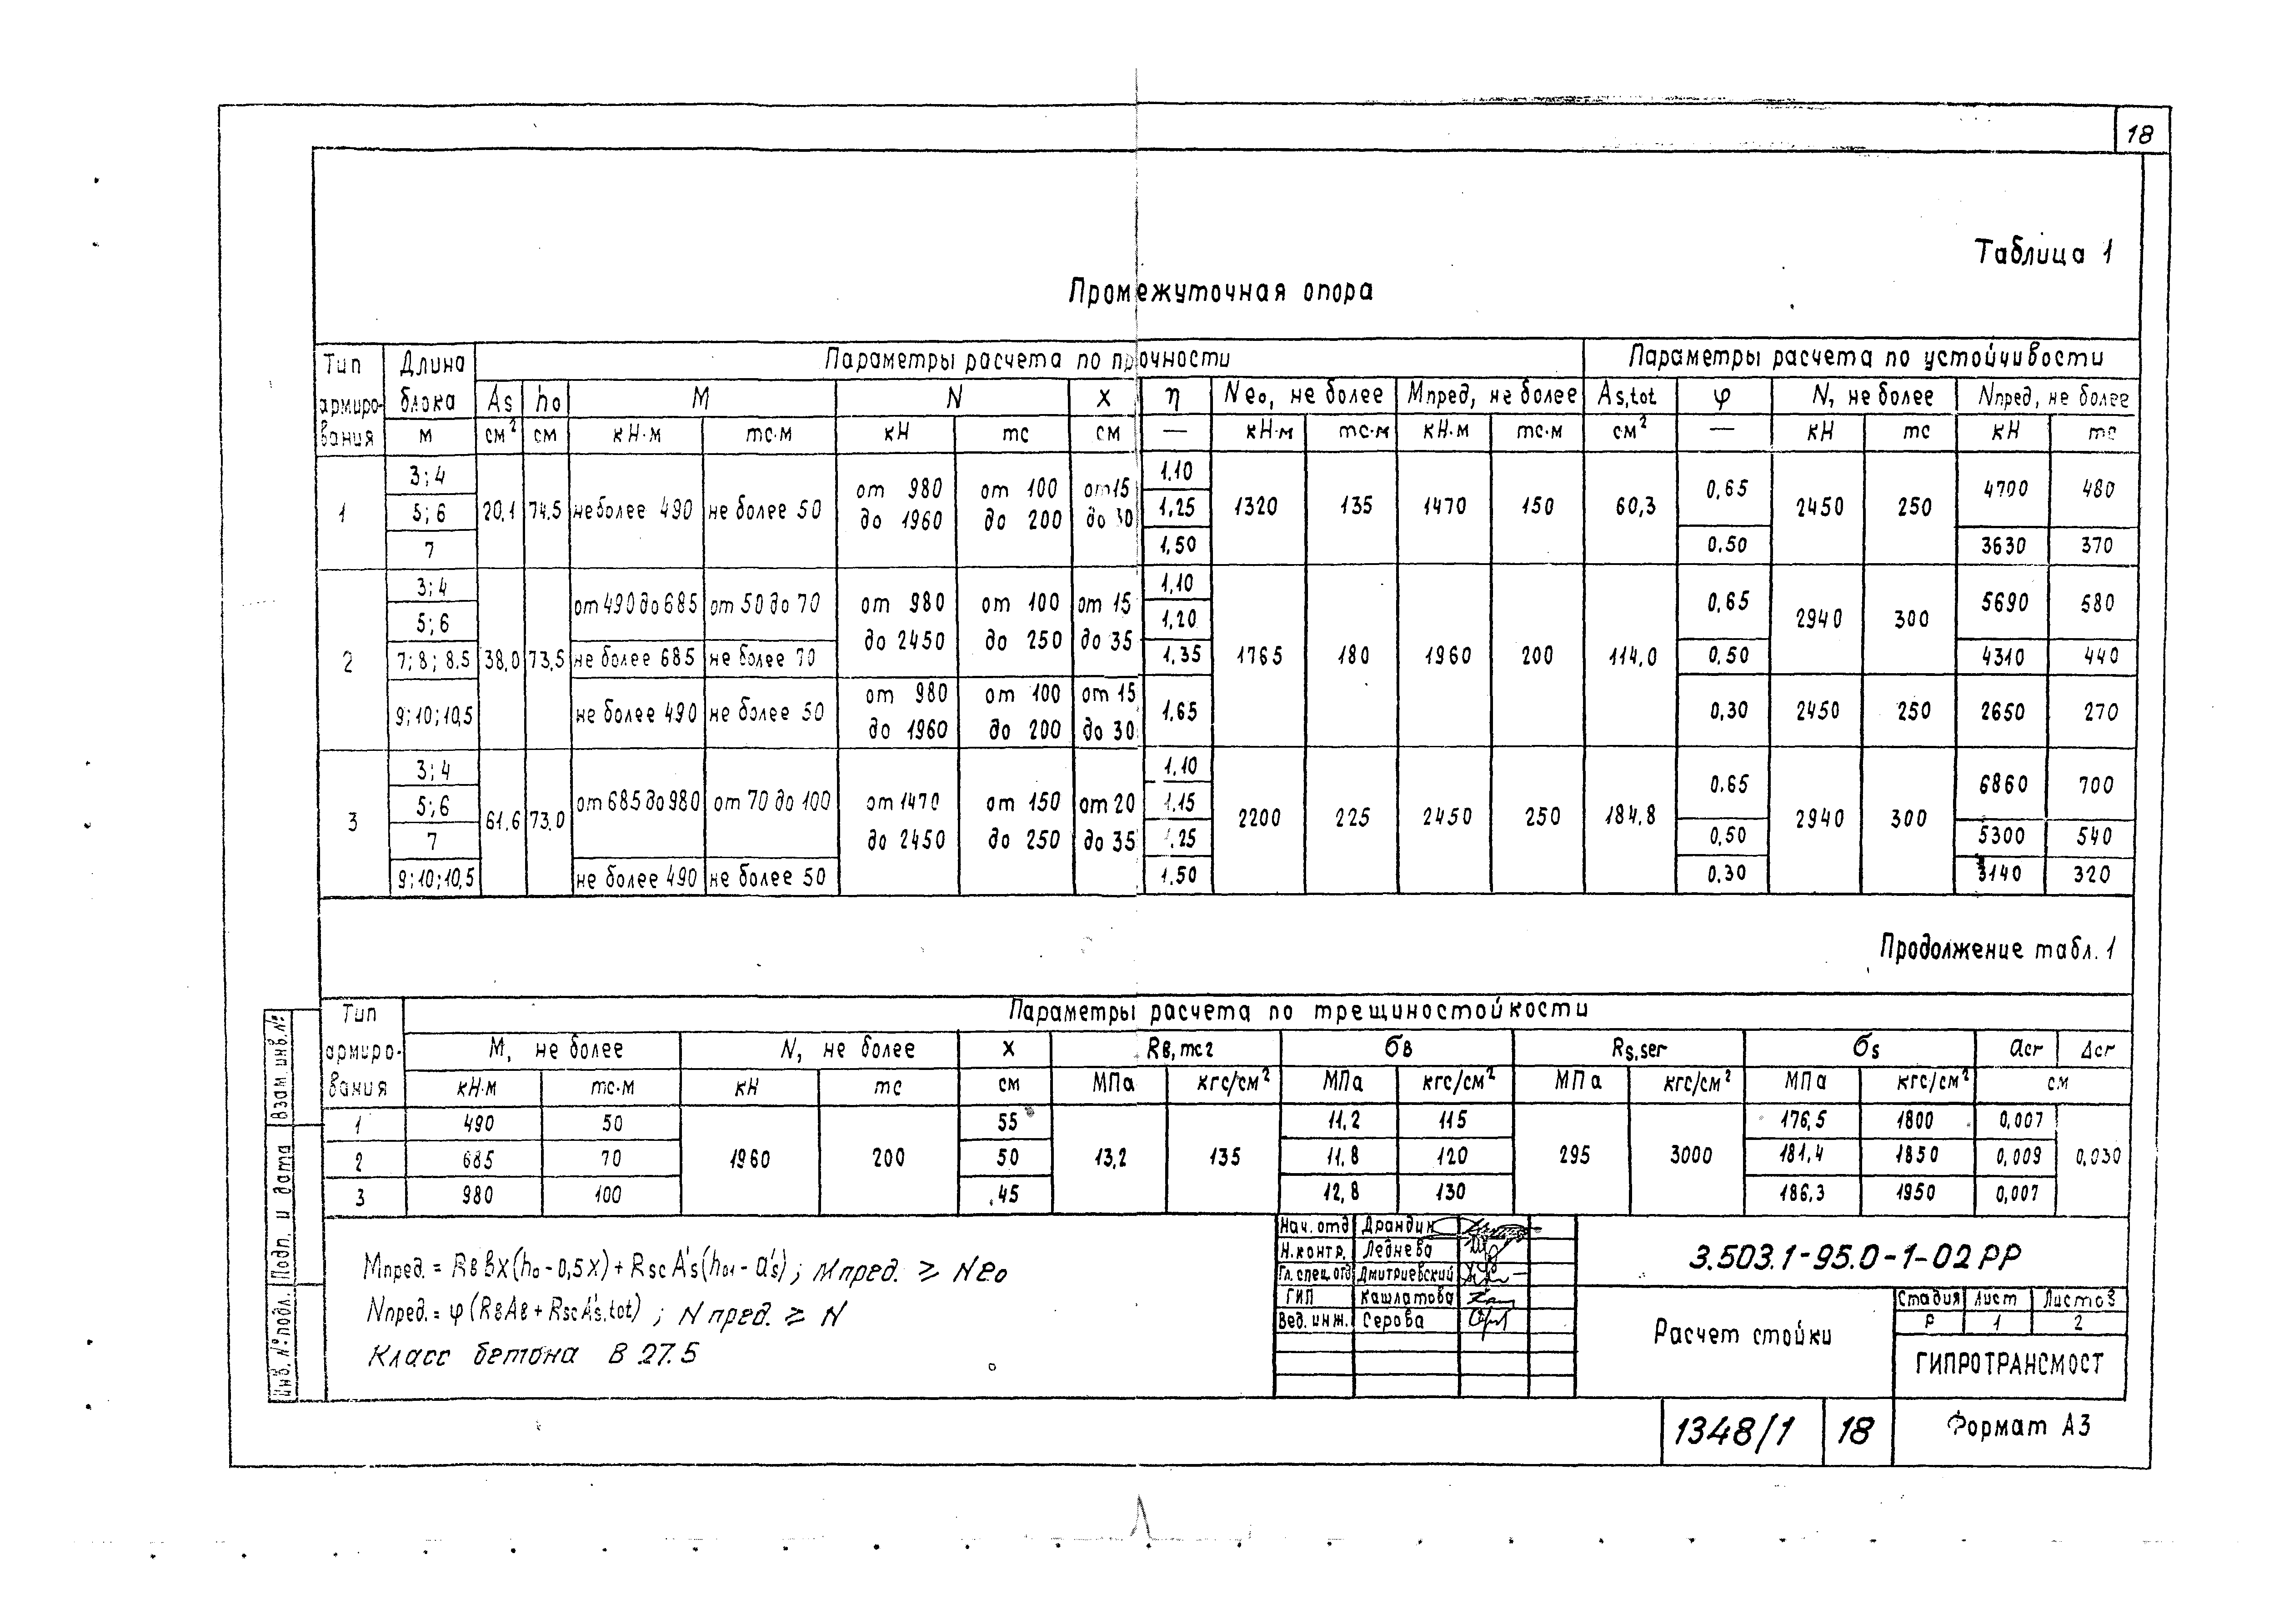 18
Таблица 1
Промежуточная опора
Тип армиро- вания Длина блока Параметры расчета по прочности Параметры расчета по устойчивости
As ho M N x η Neo, не более Mпред, не более As,tot φ N, не более Nпред, не более
м см² см кН·м тс·м кН тс см — кН·м тс·м кН·м тс·м см² — кН тс кН тс
1 3; 4 20,1 74,5 не более 490 не более 50 от 980 до 1960 от 100 до 200 от 15 до 30 1,10 1320 135 1470 150 60,3 0,65 2450 250 4700 480
5; 6 1,25
7 1,50 0,50 3630 370
2 3; 4 38,0 73,5 от 490 до 685 от 50 до 70 от 980 до 2450 от 100 до 250 от 15 до 35 1,10 1765 180 1960 200 114,0 0,65 2940 300 5690 580
5; 6 1,20
7; 8; 8.5 не более 685 не более 70 1,35 0,50 4310 440
9; 10; 10,5 не более 490 не более 50 от 980 до 1960 от 100 до 200 от 15 до 30 1,65 0,30 2450 250 2650 270
3 3; 4 61,6 73,0 от 685 до 980 от 70 до 100 от 1470 до 2450 от 150 до 250 от 20 до 35 1,10 2200 225 2450 250 184,8 0,65 2940 300 6860 700
5; 6 1,15
7 1,25 0,50 5300 540
9; 10; 10,5 не более 490 не более 50 1,50 0,30 3140 320
Продолжение табл. 1
Тип армиро- вания Параметры расчета по трещиностойкости
M, не более N, не более x Rв, mc2 σв Rs,ser σs acr Δcr
кН·м тс·м кН тс см МПа кгс/см² МПа кгс/см² МПа кгс/см² МПа кгс/см² см
1 490 50 1960 200 55 13,2 135 11,2 115 295 3000 176,5 1800 0,007 0,030
2 685 70 50 11,8 120 181,4 1850 0,009
3 980 100 45 12,8 130 186,3 1950 0,007
Mпред. = Rв вx(ho - 0,5x) + Rsc A's(ho1 - a's); Mпред. ≥ Neo
Nпред. = φ(RвAв + RscA's,tot); N пред. ≥ N
Класс бетона В 27.5
Нач. отд Драндин
Н. контр. Леднева
Гл. спец. отд Дмитриевский
ГИП Кашлатова
Вед. инж. Серова
3.503.1-95.0-1-02РР
Расчет стойки
Стадия Лист Листов
Р 1 2
ГИПРОТРАНСМОСТ
Взам инв. №
Подп. и дата
Инв. № подл.
1348/1 18 Формат А3